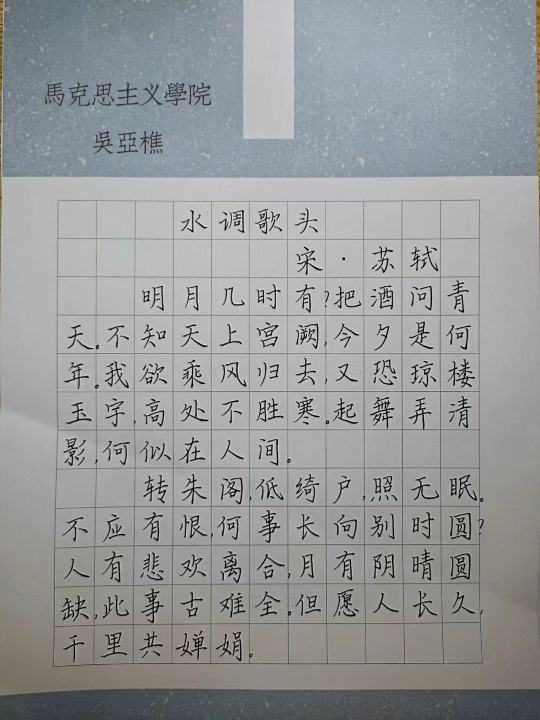 馬克思主义學院
吳亞樵
水调歌头
宋·苏轼
明月几时有?把酒问青
天。不知天上宫阙,今夕是何
年。我欲乘风归去,又恐琼楼
玉宇,高处不胜寒。起舞弄清
影,何似在人间。
转朱阁,低绮户,照无眠。
不应有恨,何事长向别时圆?
人有悲欢离合,月有阴晴圆
缺,此事古难全。但愿人长久,
千里共婵娟。